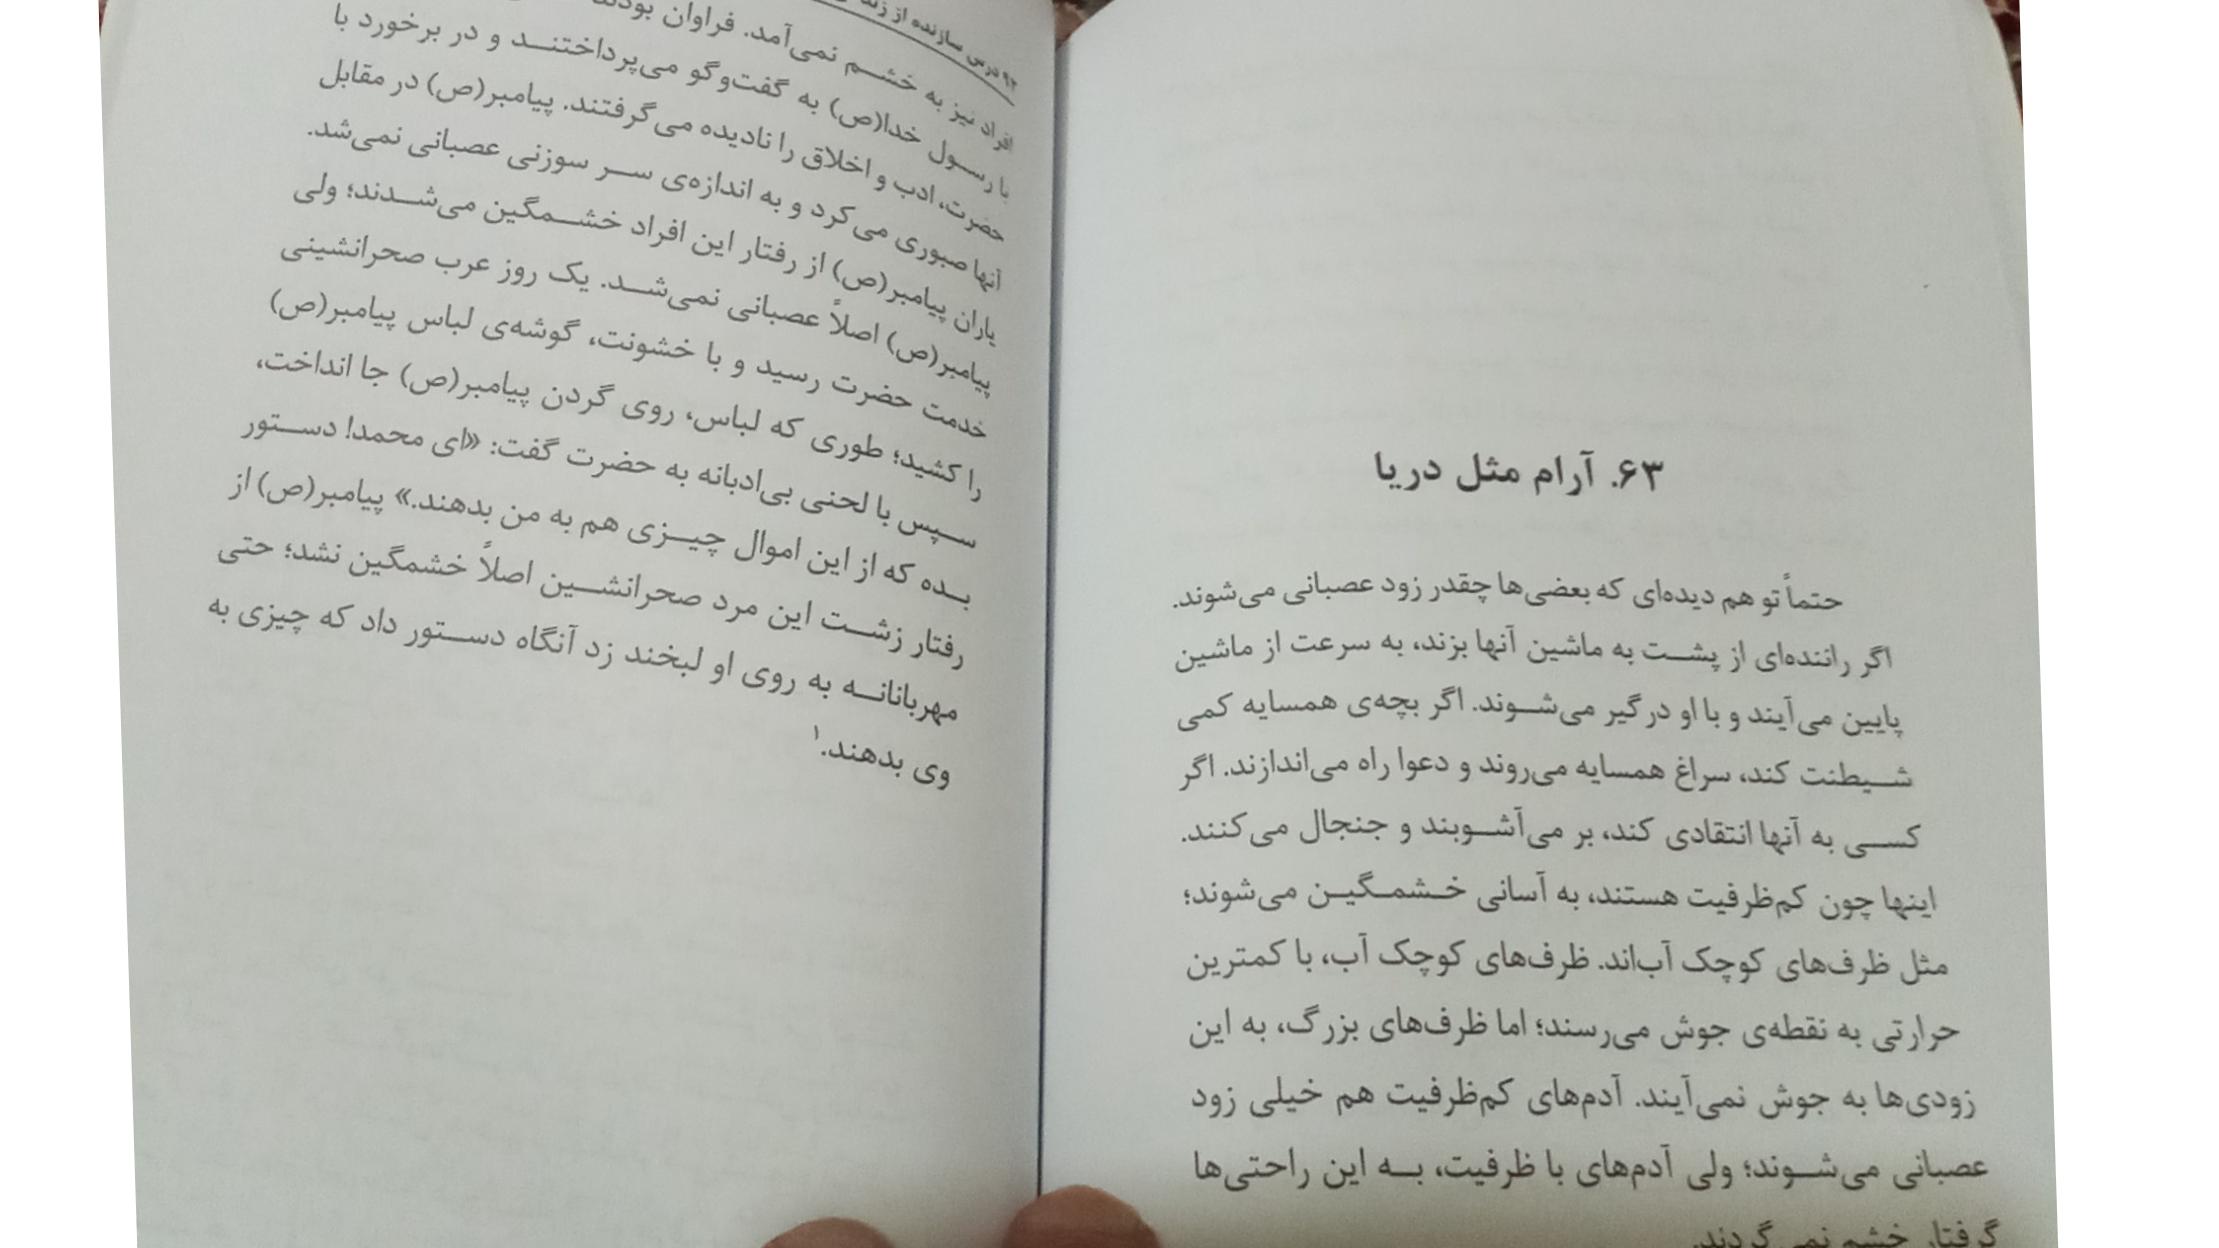 ۶۳. آرام مثل دریا
حتماً تو هم دیده‌ای که بعضی‌ها چقدر زود عصبانی می‌شوند.
اگر راننده‌ای از پشت به ماشین آنها بزند، به سرعت از ماشین
پایین می‌آیند و با او درگیر می‌شوند. اگر بچه‌ی همسایه کمی
شیطنت کند، سراغ همسایه می‌روند و دعوا راه می‌اندازند. اگر
کسی به آنها انتقادی کند، بر می‌آشوبند و جنجال می‌کنند.
اینها چون کم‌ظرفیت هستند، به آسانی خشمگین می‌شوند؛
مثل ظرف‌های کوچک آب‌اند. ظرف‌های کوچک آب، با کمترین
حرارتی به نقطه‌ی جوش می‌رسند؛ اما ظرف‌های بزرگ، به این
زودی‌ها به جوش نمی‌آیند. آدم‌های کم‌ظرفیت هم خیلی زود
عصبانی می‌شوند؛ ولی آدم‌های با ظرفیت، به این راحتی‌ها
گرفتار خشم نمی‌گردند.
۹۲ درس سازنده از
افراد نیز به خشم نمی‌آمد. فراوان
با رسول خدا(ص) به گفت‌وگو می‌پرداختند و در برخورد با
حضرت، ادب و اخلاق را نادیده می‌گرفتند. پیامبر(ص) در مقابل
آنها صبوری می‌کرد و به اندازه‌ی سر سوزنی عصبانی نمی‌شد.
یاران پیامبر(ص) از رفتار این افراد خشمگین می‌شدند؛ ولی
پیامبر(ص) اصلاً عصبانی نمی‌شد. یک روز عرب صحرانشینی
خدمت حضرت رسید و با خشونت، گوشه‌ی لباس پیامبر(ص)
را کشید؛ طوری که لباس، روی گردن پیامبر(ص) جا انداخت،
سپس با لحنی بی‌ادبانه به حضرت گفت: «ای محمد! دستور
بده که از این اموال چیزی هم به من بدهند.» پیامبر(ص) از
رفتار زشت این مرد صحرانشین اصلاً خشمگین نشد؛ حتی
مهربانانه به روی او لبخند زد آنگاه دستور داد که چیزی به
وی بدهند.۱